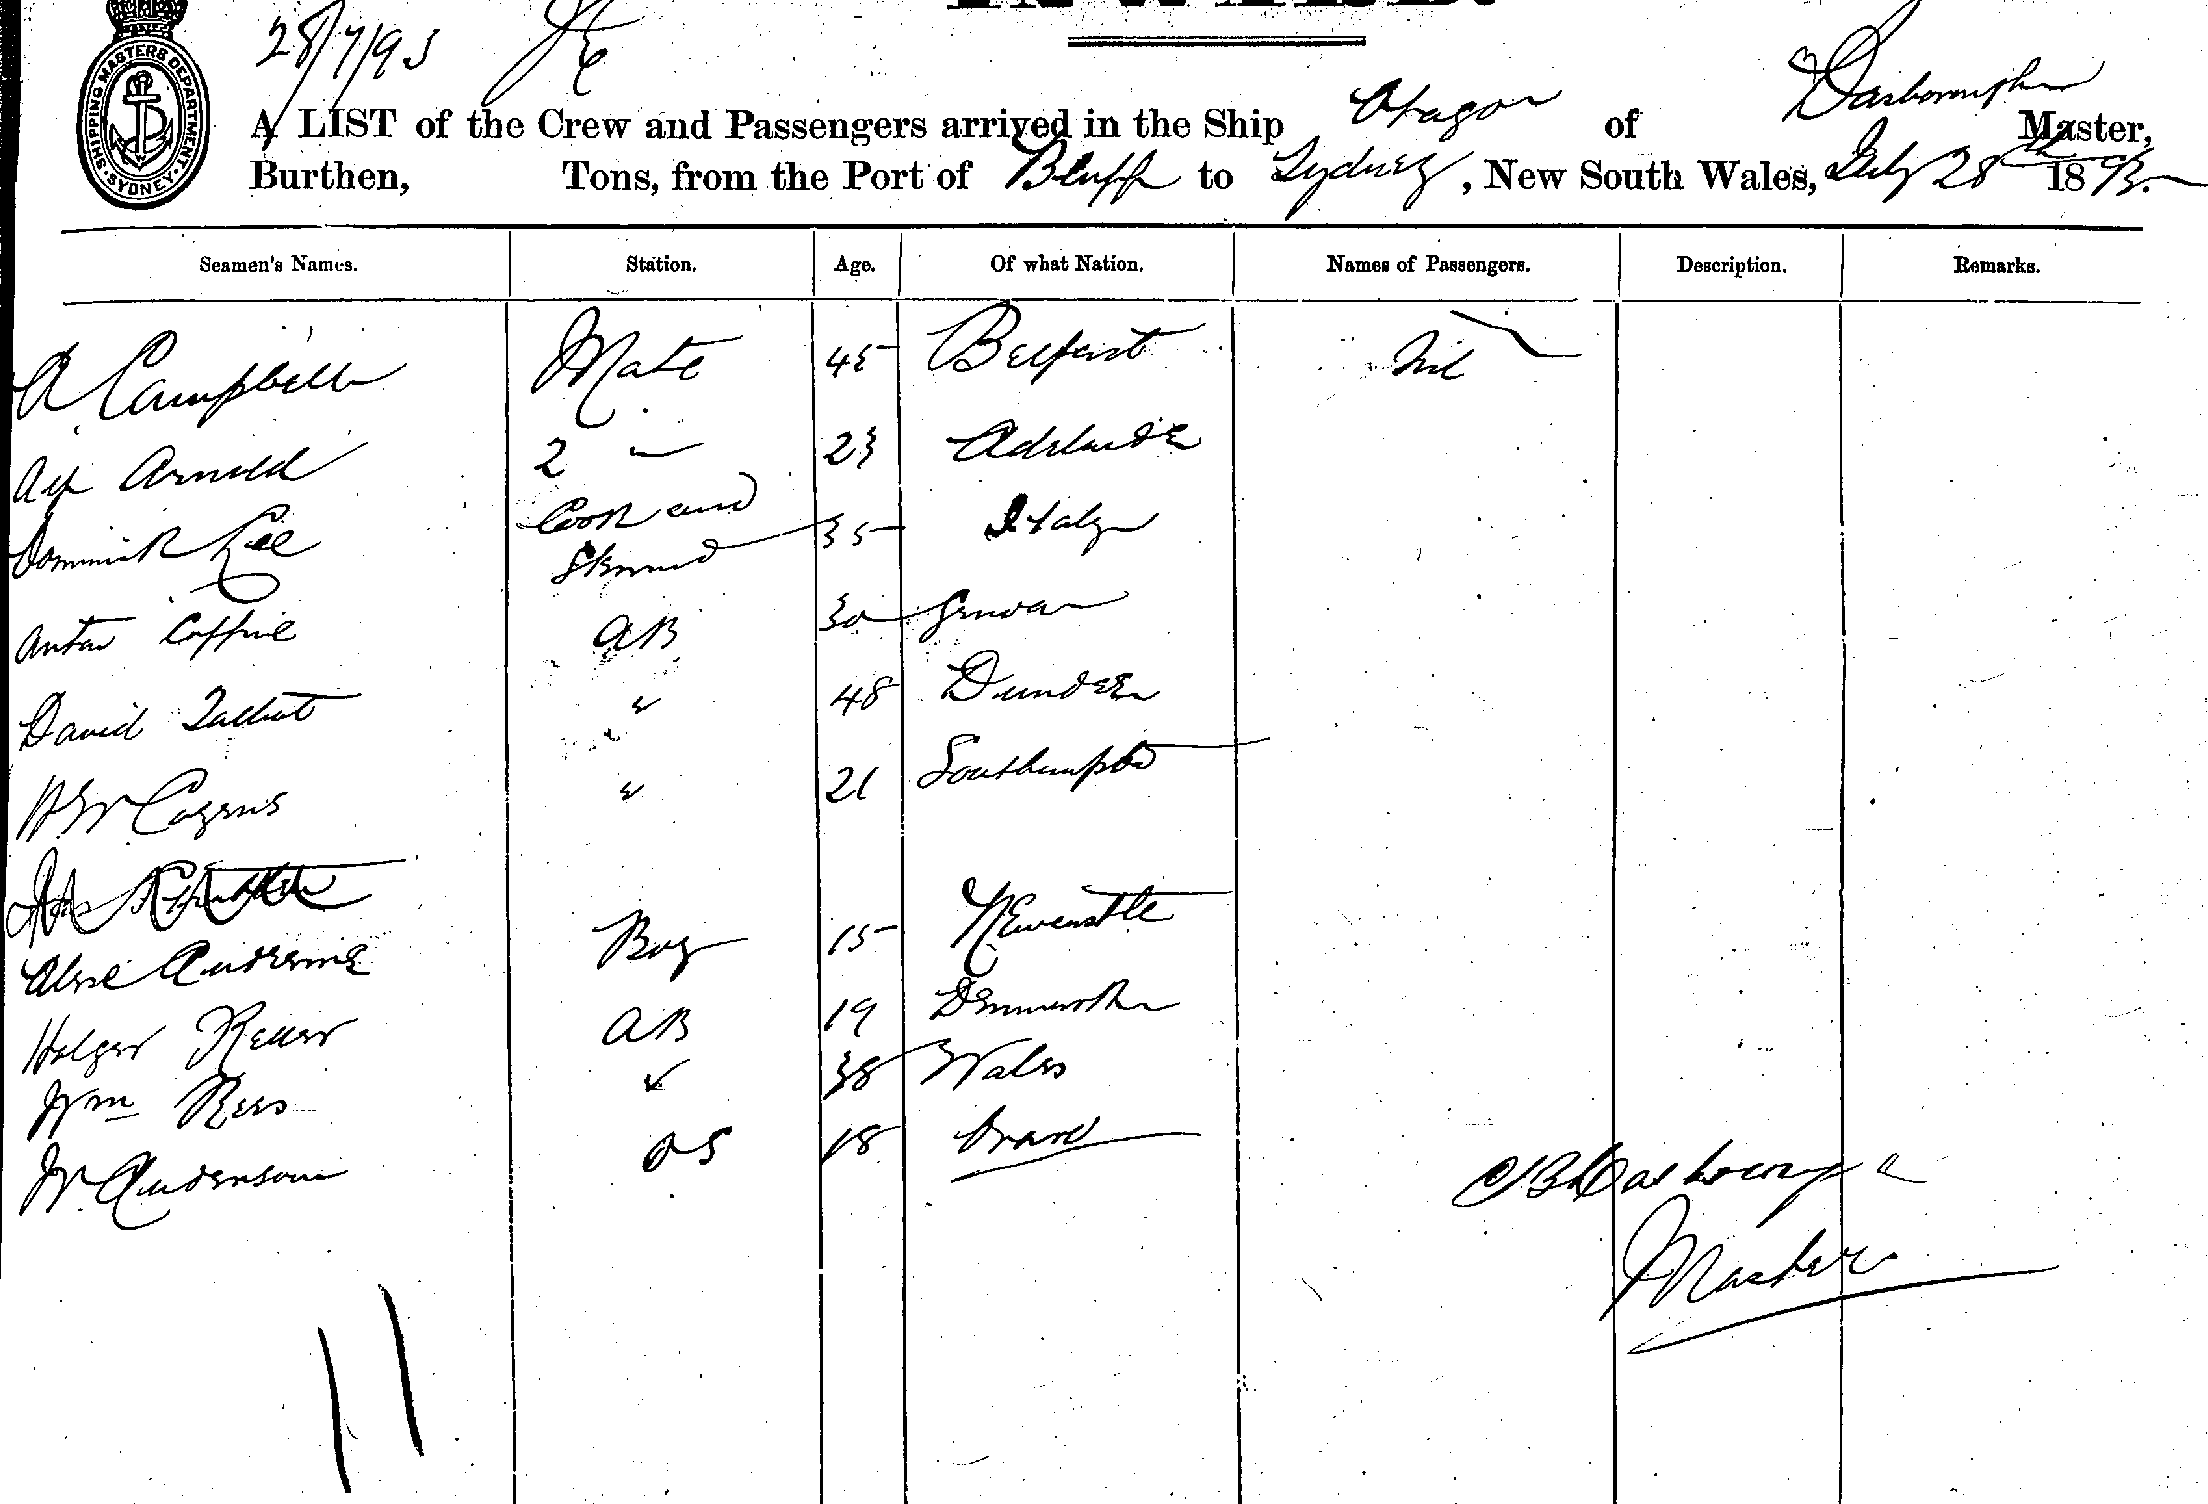 INWARD.
28/7/93
SHIPPING MASTERS DEPARTMENT. SYDNEY.
A LIST of the Crew and Passengers arrived in the Ship Otago of Dasborough Master,
Burthen, Tons, from the Port of Bluff to Sydney, New South Wales, July 28th 1893.
Seamen's Names. Station. Age. Of what Nation. Names of Passengers. Description. Remarks.
A Campbell Mate 45 Belfast Nil
Arnold 2 — 23 Adelaide
Dominick Lee Cook and Steward 35 Italy
Anton AB 30 Genoa
David Talbot " 48 Dundee
" 21 Southampton
Boy 15 Newcastle
Holger AB 19 Denmark
Wm Rees " 38 Wales
W Anderson OS 18
Dasborough
Master
11